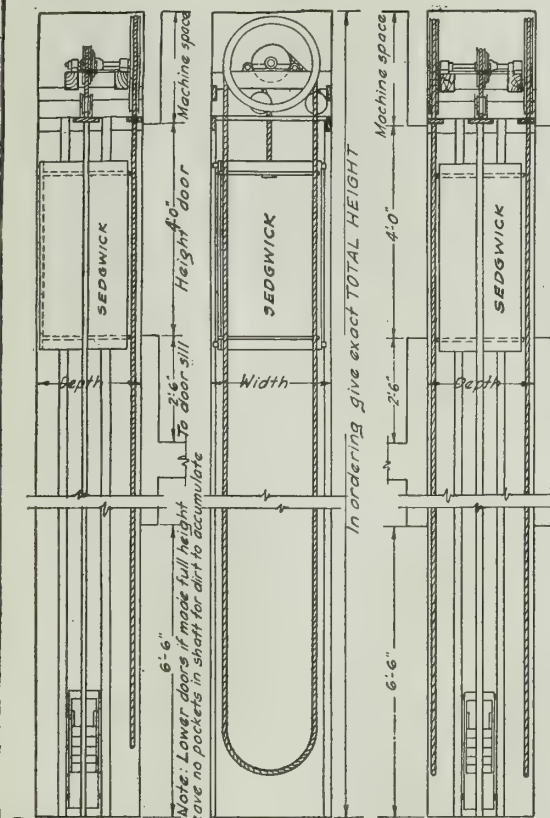 Machine space
4'-0"
Height door
SEDGWICK
Depth
2'-6"
To door sill
6'-6"
Note: Lower doors if made full height
ave no pockets in shaft for dirt to accumulate
SEDGWICK
Width
In ordering give exact TOTAL HEIGHT
Machine space
4'-0"
SEDGWICK
Depth
2'-6"
6'-6"